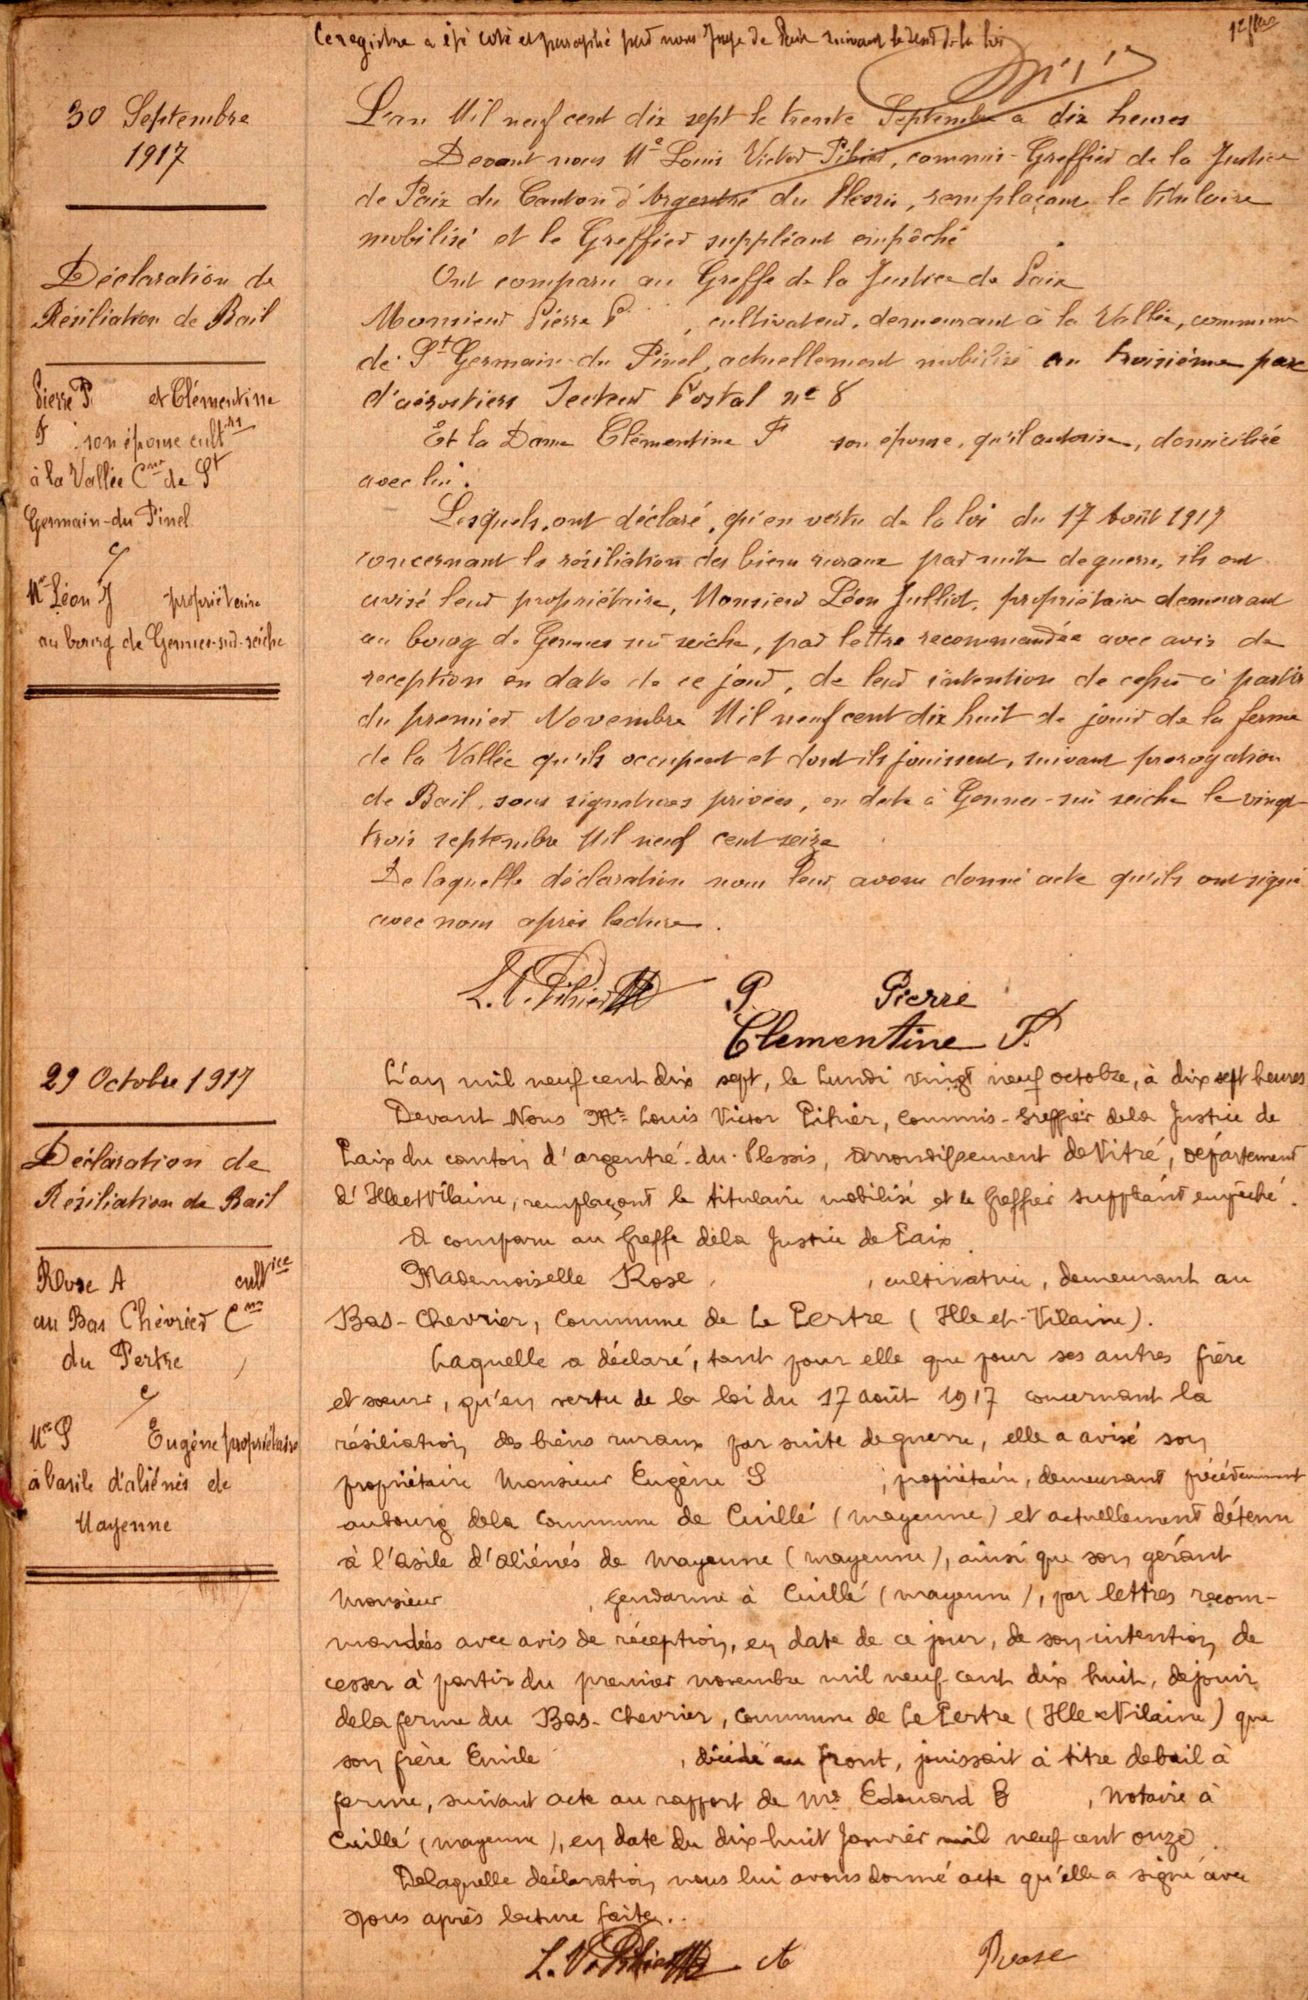 Ce registre a été coté et paraphé par nous Juge de Paix suivant le vœu de la loi
1er
30 Septembre
1917
Déclaration de
Résiliation de Bail
Pierre P et Clémentine
F son épouse cultrs
à la Vallée Cne de St
Germain-du Pinel
c/
Mr Léon J propriétaire
au bourg de Gennes-sur-seiche
L'an Mil neuf cent dix sept le trente Septembre à dix heures
Devant nous Me Louis Victor Pihier, commis-Greffier de la Justice
de Paix du Canton d'Argentré du Plessis, remplaçant le titulaire
mobilisé et le Greffier suppléant empêché
Ont comparu au Greffe de la Justice de Paix
Monsieur Pierre P , cultivateur, demeurant à la Vallée, commune
de St Germain-du Pinel, actuellement mobilisé au troisième parc
d'aérostiers Secteur Postal no 8
Et la Dame Clémentine F son épouse, qu'il autorise, domiciliée
avec lui.
Lesquels, ont déclaré, qu'en vertu de la loi du 17 Août 1917
concernant la résiliation des biens ruraux par suite de guerre, ils ont
avisé leur propriétaire, Monsieur Léon Julliot, propriétaire demeurant
au bourg de Gennes sur seiche, par lettre recommandée avec avis de
reception en date de ce jour, de leur intention de cesser à partir
du premier Novembre Mil neuf cent dix huit de jouir de la ferme
de la Vallée qu'ils occupent et dont ils jouissent, suivant prorogation
de Bail, sous signatures privées, en date à Gennes-sur seiche le vingt-
trois septembre Mil neuf cent seize
De laquelle déclaration nous leur avons donné acte qu'ils ont signé
avec nous après lecture.
L. V. Pihier P. Pierre
Clementine F.
29 Octobre 1917
Déclaration de
Résiliation de Bail
Rose A cultice
au Bas Chévrier Cne
du Pertre
c/
Mr S Eugène propriétaire
à l'asile d'aliénés de
Mayenne
L'an mil neuf cent dix sept, le Lundi vingt neuf octobre, à dix sept heures
Devant Nous Me Louis Victor Pihier, Commis-Greffier de la Justice de
Paix du canton d'argentré-du-Plessis, arrondissement de Vitré, département
d'Ille et Vilaine, remplaçant le titulaire mobilisé et le Greffier suppléant empêché.
A comparu au Greffe de la Justice de Paix
Mademoiselle Rose , cultivatrice, demeurant au
Bas-Chevrier, Commune de Le Pertre (Ille-et-Vilaine).
Laquelle a déclaré, tant pour elle que pour ses autres frère
et sœurs, qu'en vertu de la loi du 17 août 1917 concernant la
résiliation des biens ruraux par suite de guerre, elle a avisé son
propriétaire Monsieur Eugène S , propriétaire, demeurant précédemment
au bourg de la Commune de Cuillé (mayenne) et actuellement détenu
à l'asile d'aliénés de Mayenne (mayenne), ainsi que son gérant
Monsieur , Gendarme à Cuillé (mayenne), par lettres recom-
mandées avec avis de réception, en date de ce jour, de son intention de
cesser à partir du premier novembre mil neuf cent dix huit, de jouir
de la ferme du Bas-Chevrier, Commune de Le Pertre (Ille & Vilaine) que
son frère Emile , décédé au front, jouissait à titre de bail à
ferme, suivant acte au rapport de Me Edouard B , Notaire à
Cuillé (mayenne), en date du dix-huit Janvier mil neuf cent onze.
De laquelle déclaration, nous lui avons donné acte qu'elle a signé avec
nous après lecture faite.
L. V. Pihier A Rose